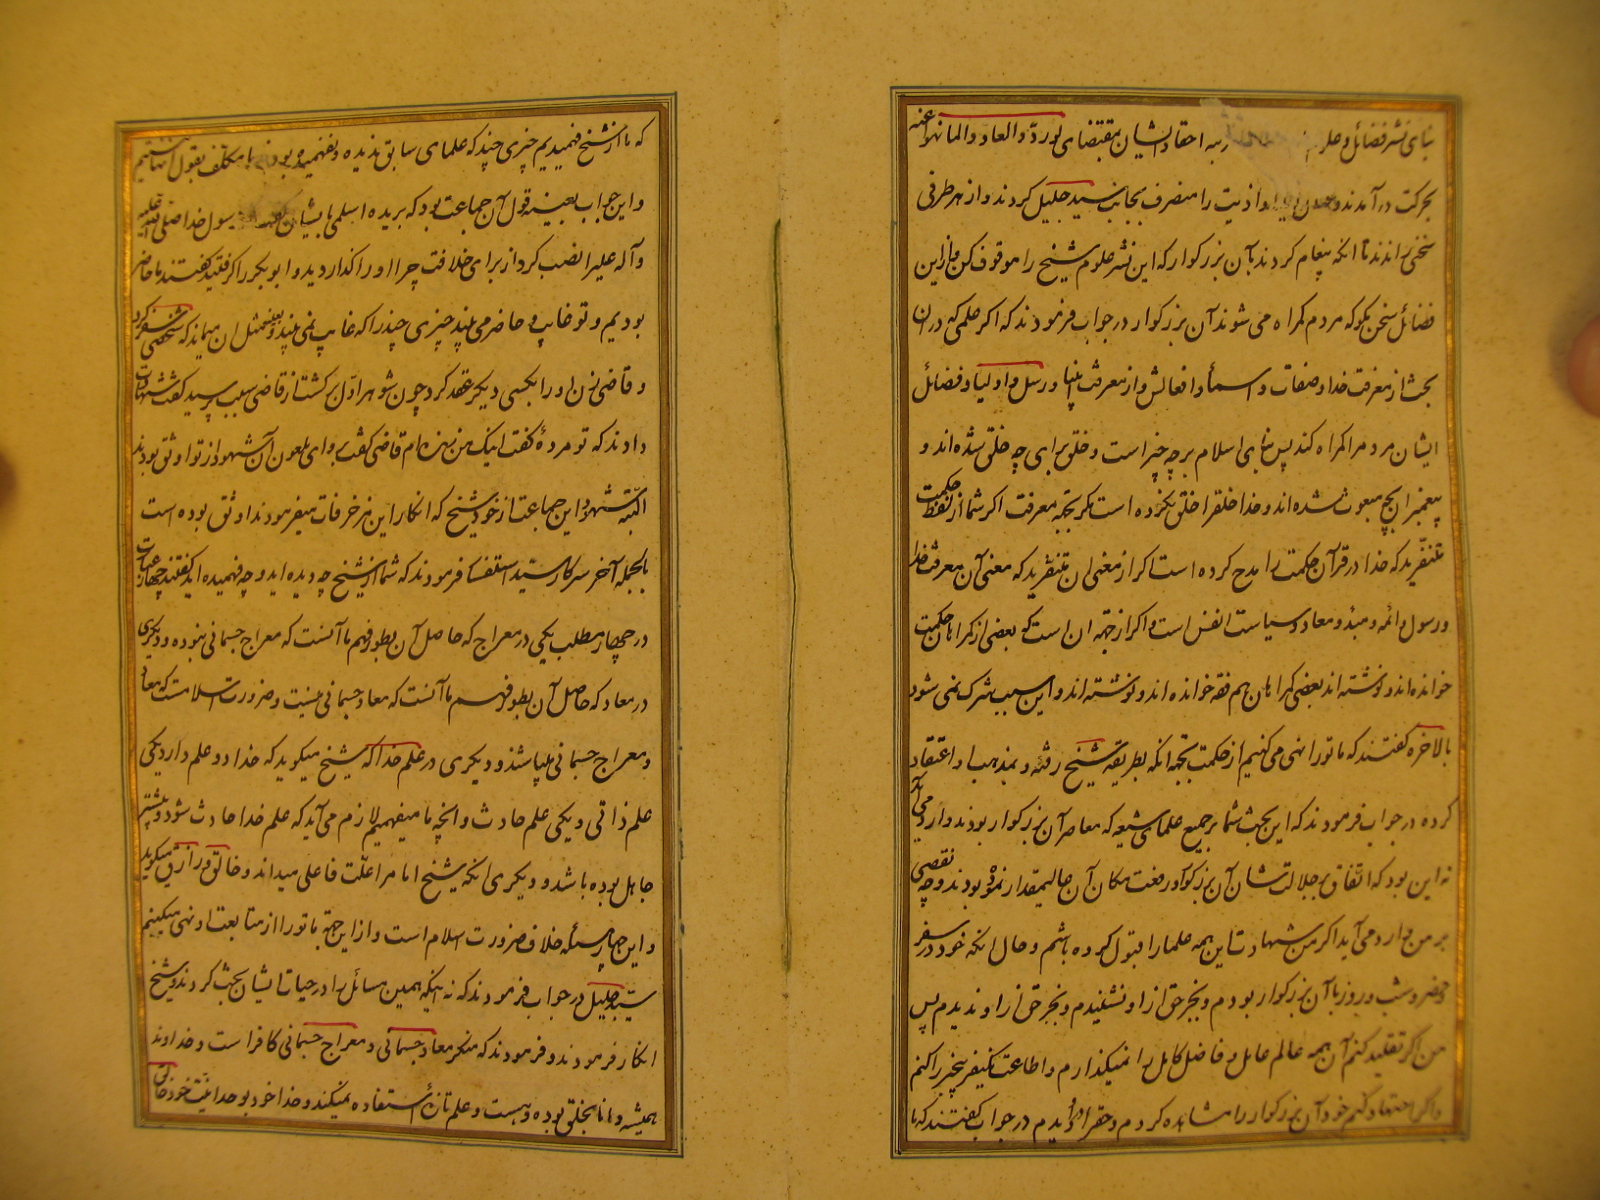 بنای نشر فضائل و علوم رسید احقاد ایشان بمقتضای لو ردّوا لعادوا لما نهوا عنه
بحرکت درآمدند و اذیت را منصرف بجانب سید جلیل کردند و از هر طرفی
سخنی راندند تا آنکه پیغام کردند بآن بزرگوار که این نشر علوم شیخ را موقوف کن و از این
فضائل سخن مگو که مردم گمراه می شوند آن بزرگوار در جواب فرمودند که اگر علمی که در آن
بحث از معرفت خدا و صفات و اسماء و افعالش و از معرفت انبیا و رسل و اولیا و فضائل
ایشان مردم را گمراه کند پس بنای اسلام بر چه چیز است و خلق برای چه خلق شده اند و
پیغمبران بچه مبعوث شده اند و خدا خلق را خلق نکرده است مگر بجهة معرفت اگر شما از لفظ حکمت
متنفرید که خدا در قرآن حکمت را مدح کرده است اگر از معنی آن متنفرید که معنی آن معرفت خدا
و رسول و ائمه و مبدء و معاد و سیاست انفس است و اگر از جهة آن است که بعضی از گمراهان حکمت
خوانده اند و نوشته اند بعضی گمراهان هم فقه خوانده اند و نوشته اند و این سبب ترک نمی شود
بالاخره گفتند که ما تو را نهی می کنیم از حکمت بجهة آنکه بطریقه شیخ رفته و بمذهب او اعتقاد
کرده در جواب فرمودند که این بحث شما بر جمیع علمای شیعه که معاصر آن بزرگوار بودند وارد می آید
نه این بود که اتفاق بر جلالت شان آن بزرگوار و رفعت مکان آن عالیمقدار نموده بودند و چه نقصی
بر من وارد می آید اگر من شهادت این همه علما را قبول کرده باشم و حال آنکه خود در سفر
و حضر و شب و روز با آن بزرگوار بودم و بجز حق از او نشنیدم و بجز حق از او ندیدم پس
من اگر تقلید کنم آن همه عالم عامل و فاضل کامل را نمیگذارم و اطاعت تکفیر بیخبر را کنم
و اگر اجتهاد کنم خود آن بزرگوار را مشاهده کردم و حق را از او دیدم در جواب گفتند که ما
که ما از شیخ فهمیدیم چیزی چند که علمای سابق ندیده و نفهمیده بودند ما مکلف بقول آنها نیستیم
و این جواب بعینه قول آن جماعت بود که بریده اسلمی بایشان گفت رسول خدا صلی الله علیه
و آله علی را نصب کرد از برای خلافت چرا او را گذاردید و ابوبکر را گرفتید گفتند ما حاضر
بودیم و تو غایب و حاضر می بیند چیزی چند را که غایب نمی بیند و بعینه مثل آن میماند که شخصی سفر کرد
و قاضی زن او را بکسی دیگر عقد کرد چون شوهر اول برگشت از قاضی سبب پرسید گفت شهادت
دادند که تو مردهٔ گفت اینک من زنده ام قاضی گفت برو ای ملعون آن شهود از تو اوثق بودند
البته شهود این جماعت از خود شیخ که انکار این مزخرفات میفرمودند اوثق بوده است
بالجمله آخر سرکار سید استفسار فرمودند که شما از شیخ چه دیده اید و چه فهمیده اید گفتند چهار عبارت
در چهار مطلب یکی در معراج که حاصل آن بطور فهم ما آنست که معراج جسمانی نبوده و دیگری
در معاد که حاصل آن بطور فهم ما آنست که معاد جسمانی نیست و ضرورت اسلام است که معاد
و معراج جسمانی میباشند و دیگری در علم خدا که شیخ میگوید که خدا دو علم دارد یکی
علم ذاتی و یکی علم حادث و آنچه ما میفهمیم لازم می آید که علم خدا حادث شود و پیشتر
جاهل بوده باشد و دیگری آنکه شیخ امام را علّت فاعلی میداند و خالق و رازق میگوید
و این چهار مسئله خلاف ضرورت اسلام است و از این جهة ما تو را از متابعت او نهی میکنیم
سید جلیل در جواب فرمودند که نه اینکه همین مسائل را در حیات ایشان بحث کردند و شیخ
انکار فرمودند و فرمودند که منکر معاد جسمانی و معراج جسمانی کافر است و خداوند
همیشه دانا بخلق بوده و هست و علم تازه استفاده نمیکند و خدا خود بوحدانیت خود خالق